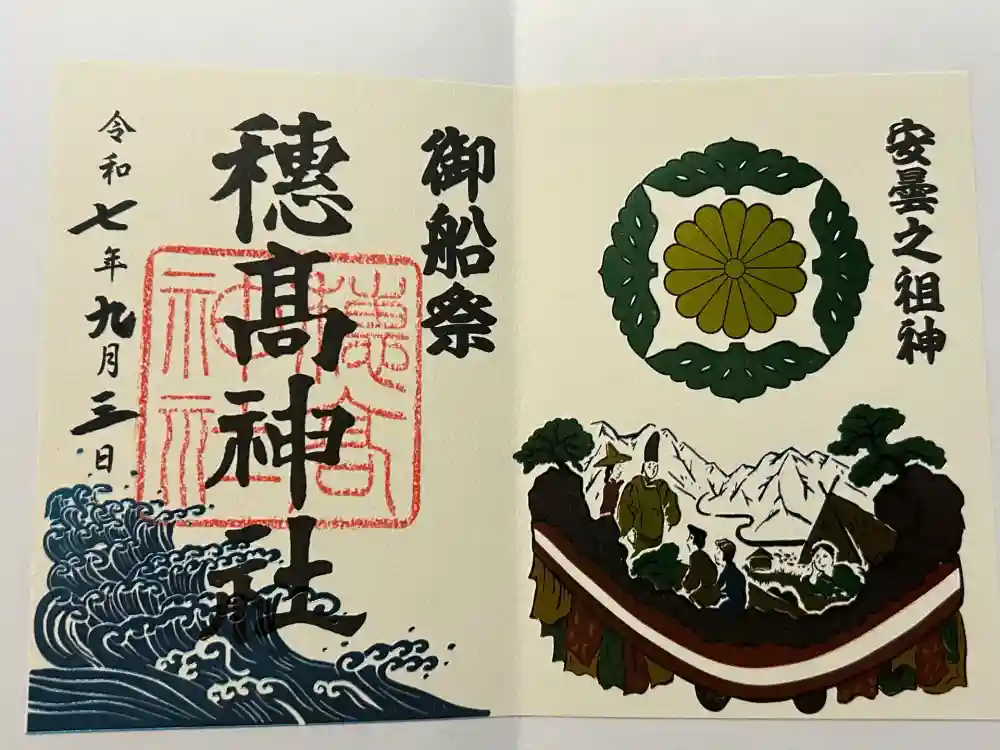 安曇之祖神
御船祭
穂髙神社
穂高神社
令和七年九月三日